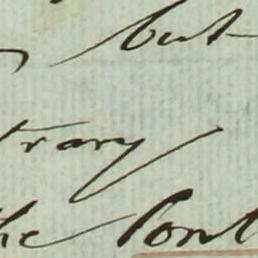 but
trary
the Cont